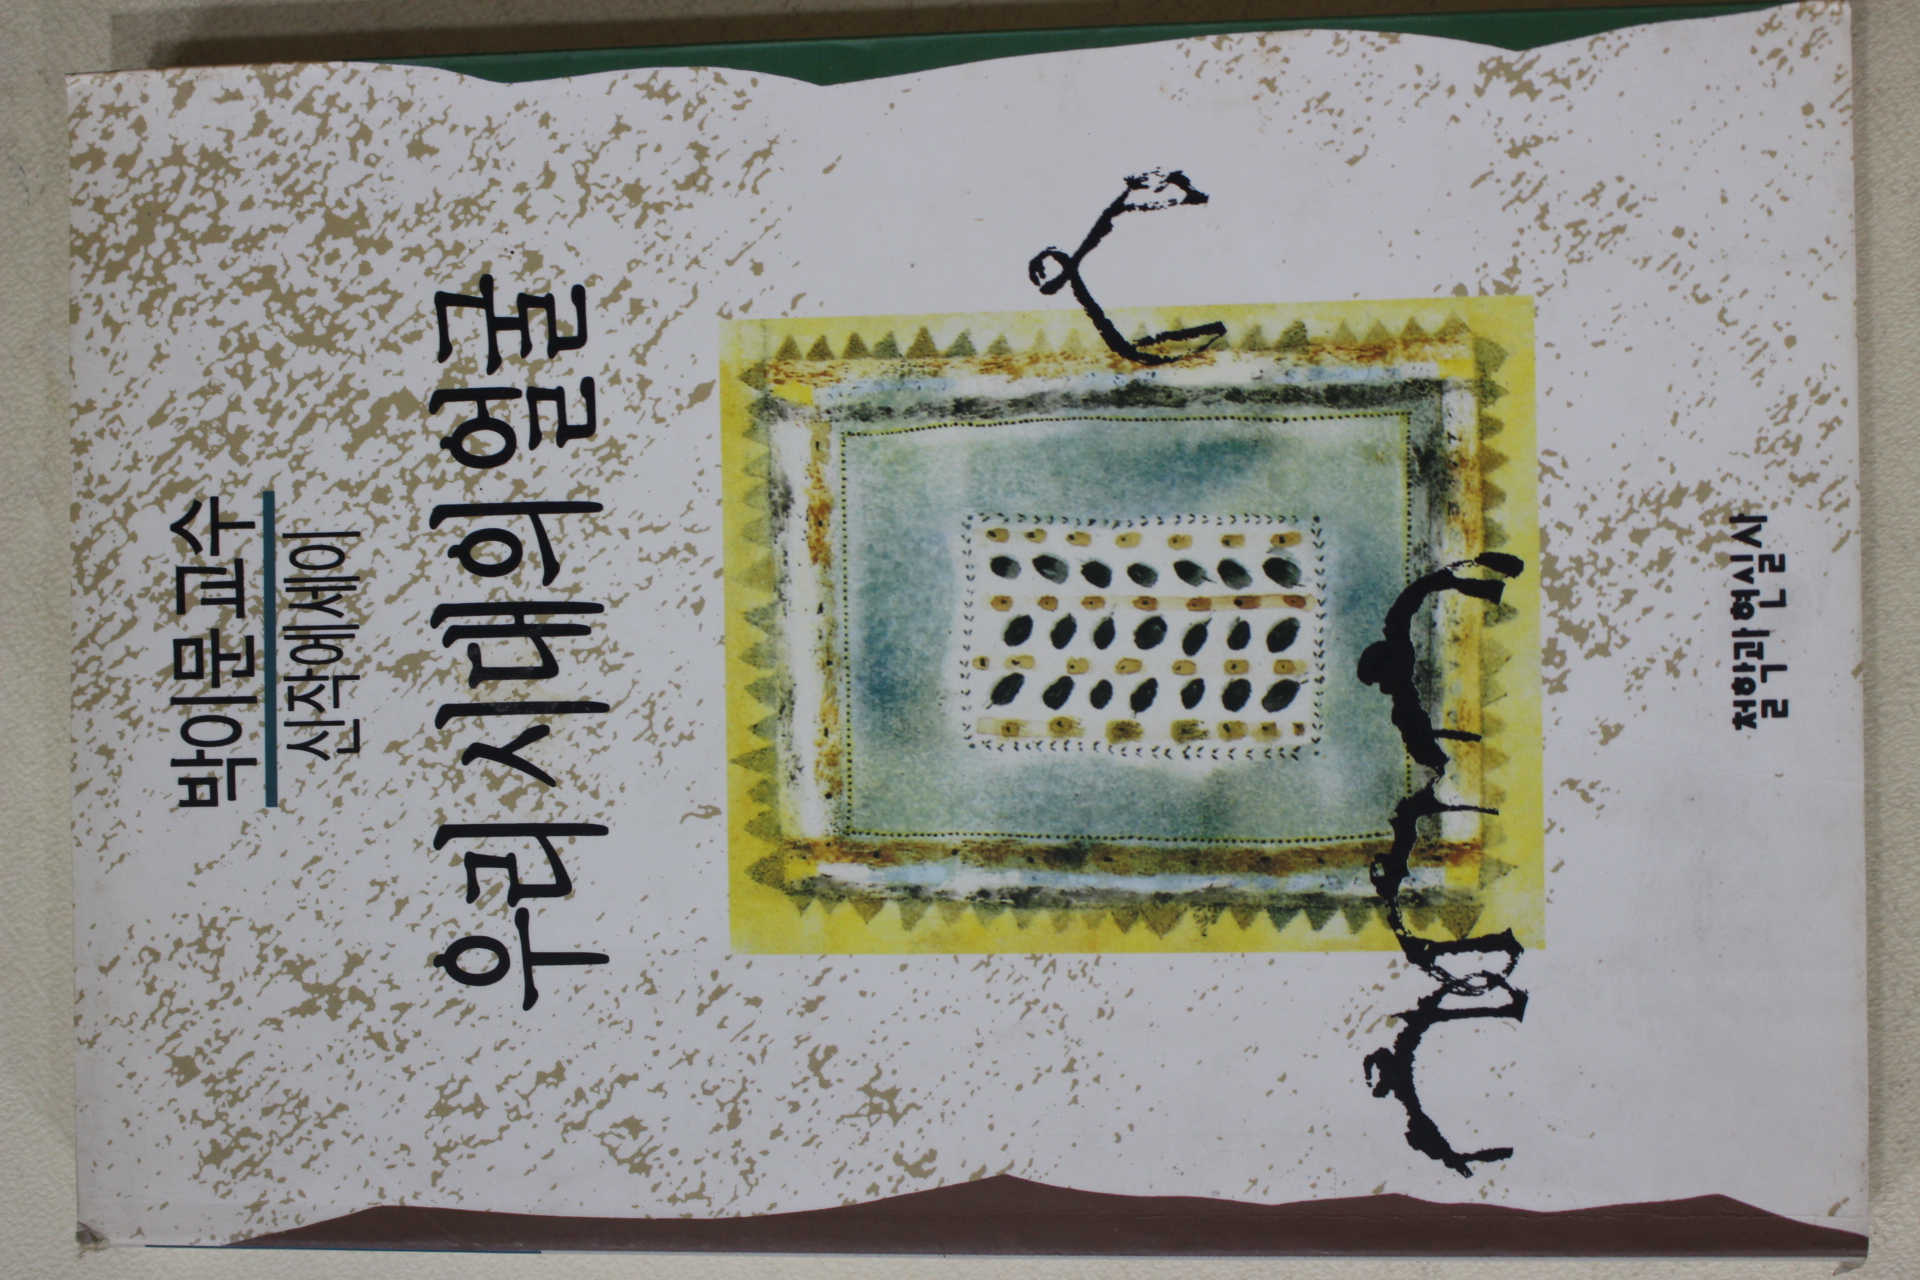 박이문 교수
신작에세이
우리시대의 얼굴
철학과 현실사